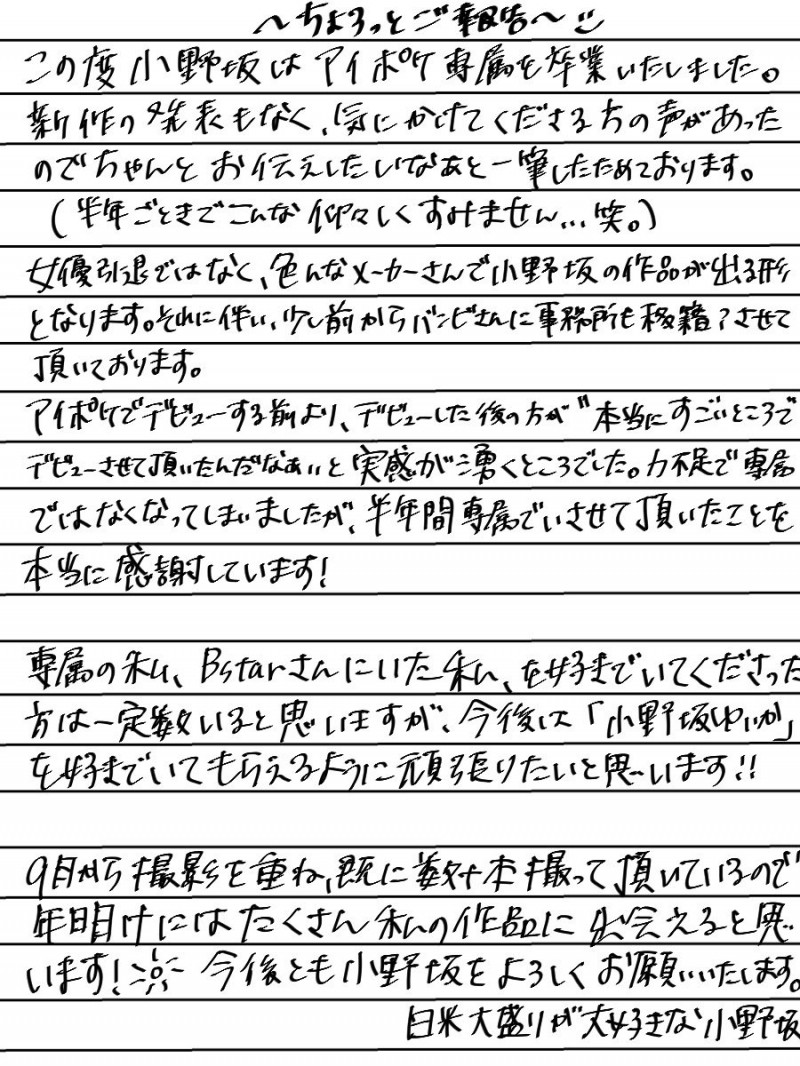 ～ちょろっとご報告～
この度小野坂はアイポケ専属を卒業いたしました。
新作の発表もなく、気にかけてくださる方の声があった
のでちゃんとお伝えしたいなあと一筆したためております。
(半年ごときでこんな仰々しくすみません...笑。)
女優引退ではなく、色んなメーカーさんで小野坂の作品が出る形
となります。それに伴い、少し前からバンビさんに事務所も移籍?させて
頂いております。
アイポケでデビューする前より、デビューした後の方が"本当にすごいところで
デビューさせて頂いたんだなぁぃと実感が湧くところでした。力不足で専属
ではなくなってしまいましたが、半年間専属でいさせて頂いたことを
本当に感謝しています!
専属の私、Bstarさんにいた私、を好きでいてくださった
方は一定数いると思いますが、今後は「小野坂ゆいか」
を好きでいてもらえるように頑張りたいと思います!!
9月から撮影を重ね、既に数十本撮って頂いているので
年明けにはたくさん私の作品に出会えると思
います! 今後とも小野坂をよろしくお願いいたします。
白米大盛りが大好きな小野坂